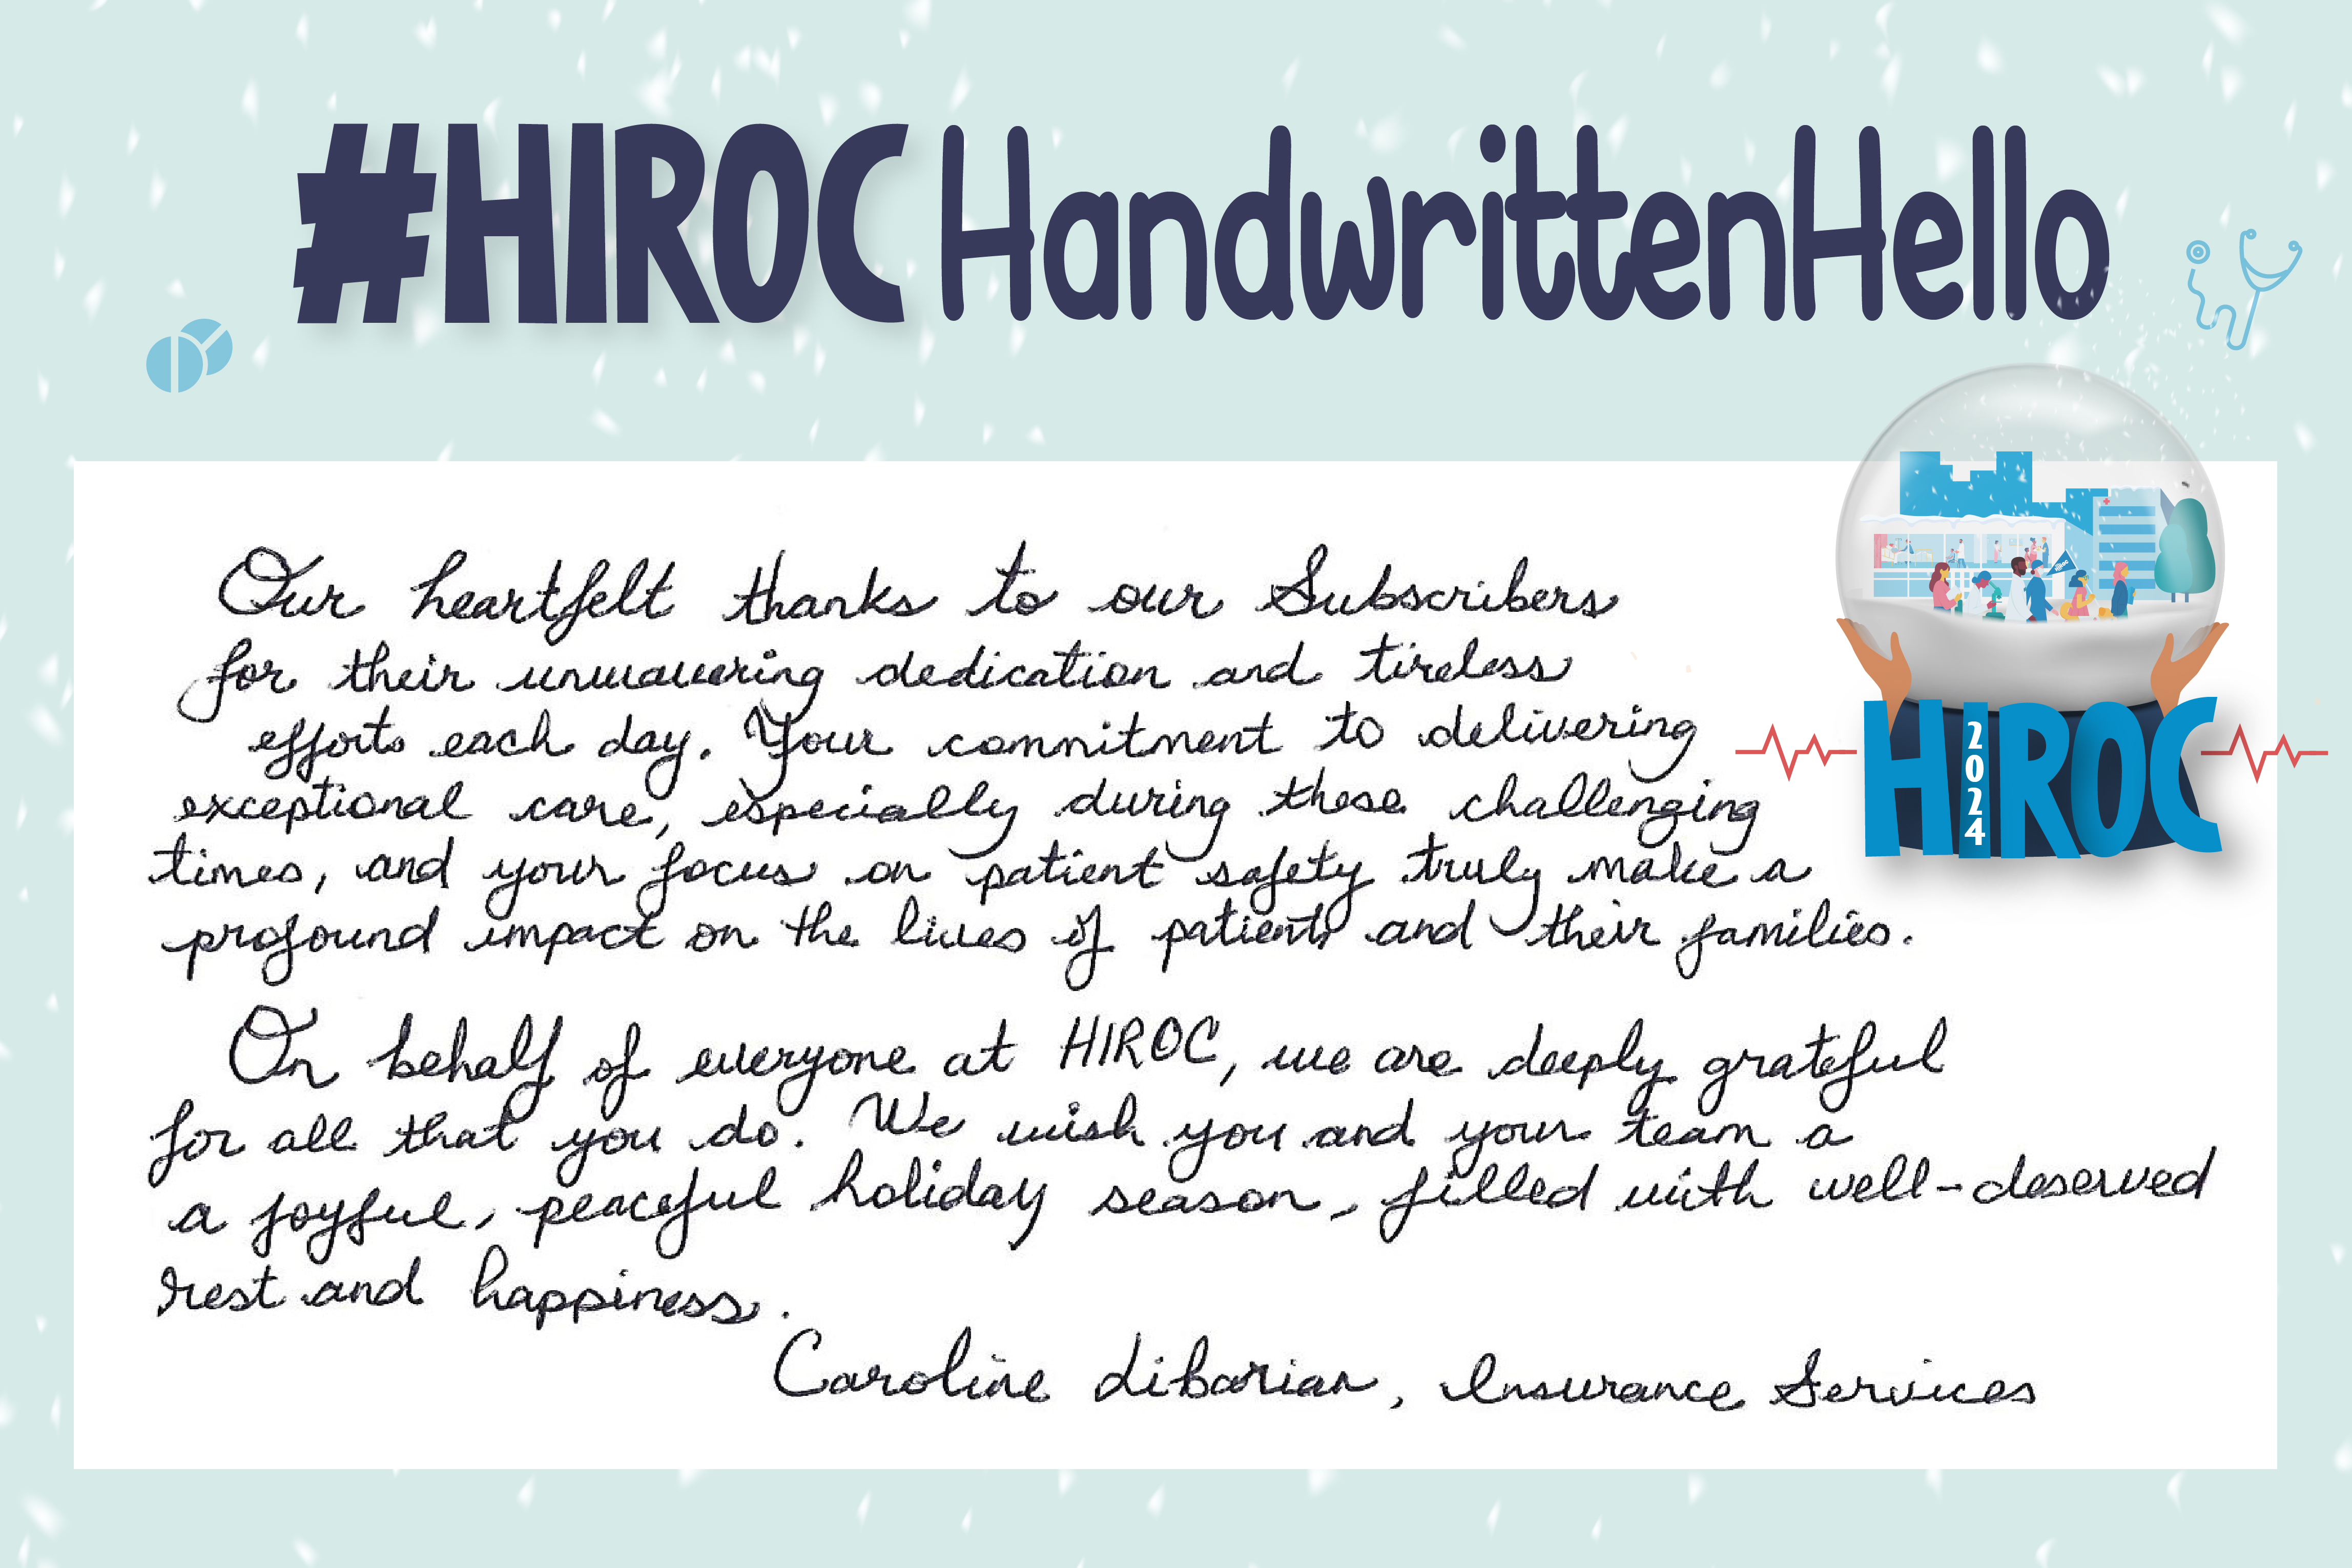 #HIROCHandwrittenHello
Our heartfelt thanks to our Subscribers
for their unwavering dedication and tireless
efforts each day. Your commitment to delivering
exceptional care, especially during these challenging
times, and your focus on patient safety truly make a
profound impact on the lives of patients and their families.
On behalf of everyone at HIROC, we are deeply grateful
for all that you do. We wish you and your team a
a joyful, peaceful holiday season, filled with well-deserved
rest and happiness.
Caroline Libarian, Insurance Services
HIROC
2024